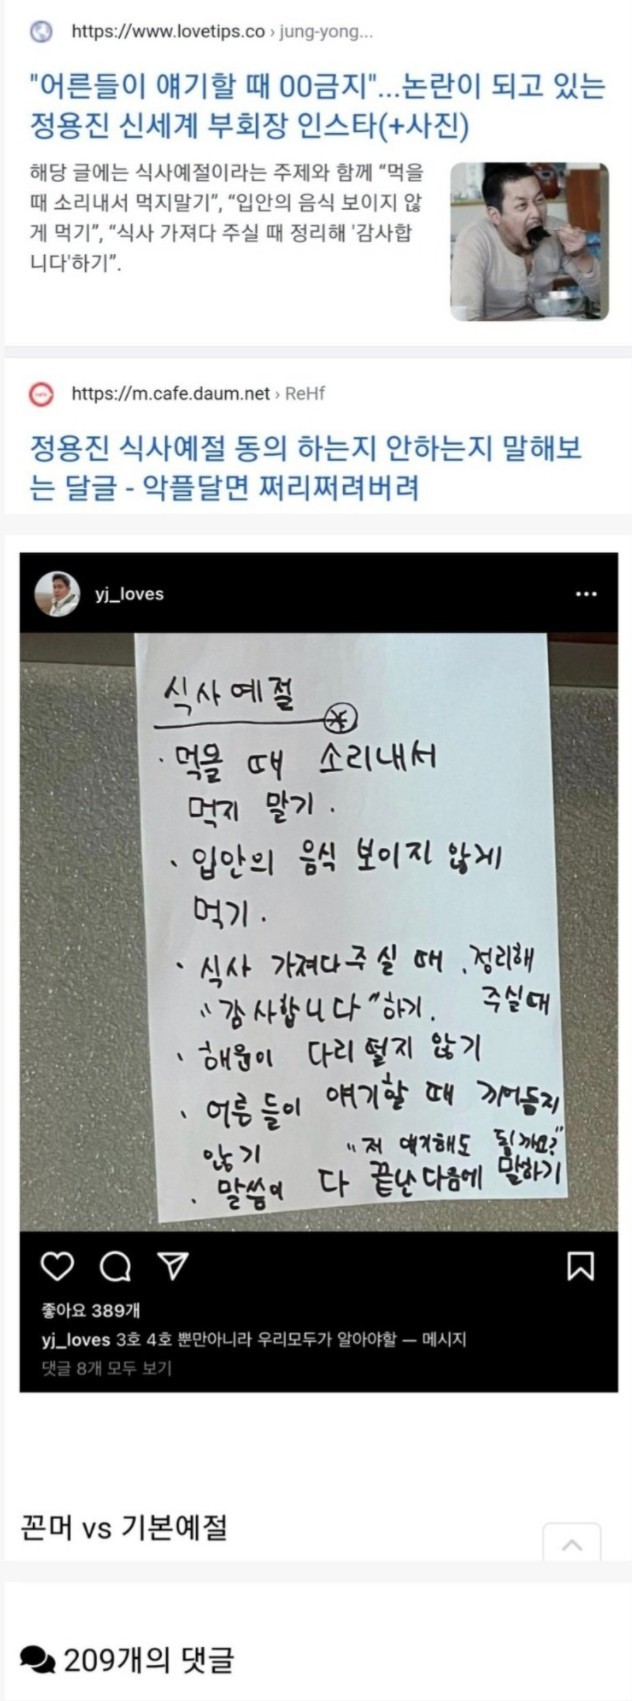 https://www.lovetips.co › jung-yong...
"어른들이 얘기할 때 00금지"...논란이 되고 있는
정용진 신세계 부회장 인스타(+사진)
해당 글에는 식사예절이라는 주제와 함께 “먹을
때 소리내서 먹지말기”, “입안의 음식 보이지 않
게 먹기”, “식사 가져다 주실 때 정리해 '감사합
니다'하기”.
https://m.cafe.daum.net › ReHf
정용진 식사예절 동의 하는지 안하는지 말해보
는 달글 - 악플달면 쩌리쩌려버려
yj_loves
식사예절
· 먹을 때 소리내서
먹지 말기.
· 입안의 음식 보이지 않게
먹기.
· 식사 가져다주실 때, 정리해
주실때
"감사합니다"하기.
· 해윤이 다리 떨지 않기
· 어른들이 얘기할 때 끼어들지
않기 "저 얘기해도 될까요?"
· 말씀이 다 끝난다음에 말하기
좋아요 389개
yj_loves 3호 4호 뿐만아니라 우리모두가 알아야할 — 메시지
댓글 8개 모두 보기
꼰머 vs 기본예절
209개의 댓글